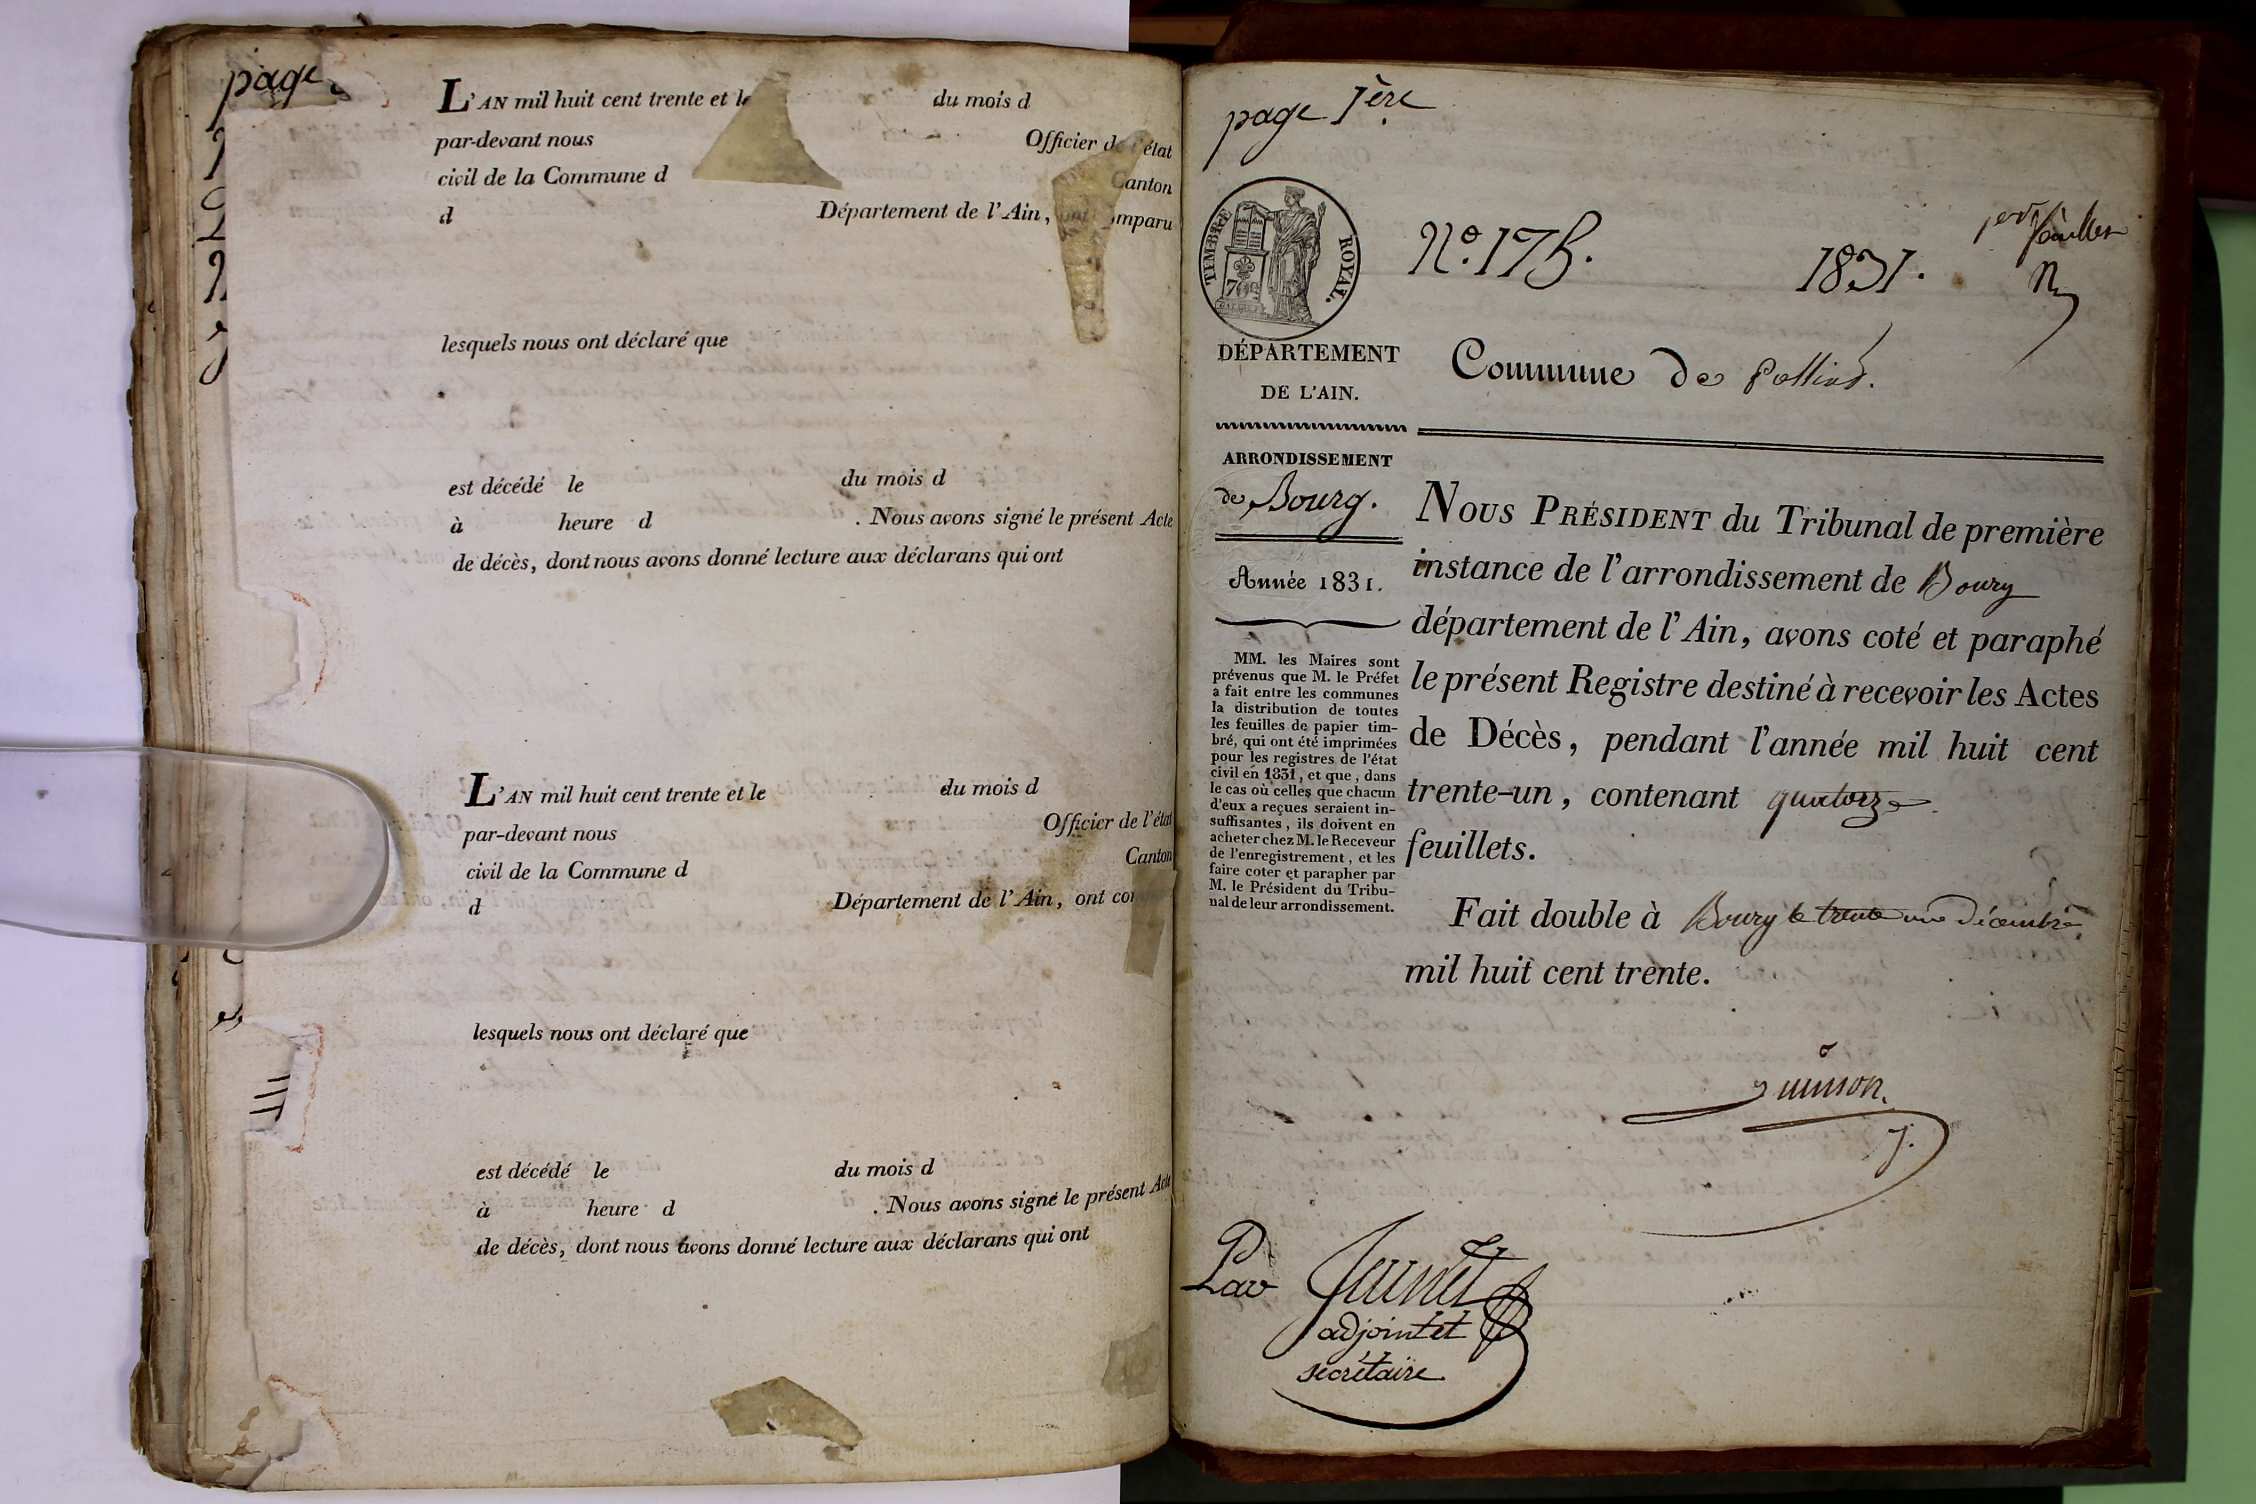 page
L'AN mil huit cent trente et le du mois d
par-devant nous Officier de l'état
civil de la Commune d Canton
d Département de l'Ain, ont comparu
lesquels nous ont déclaré que
est décédé le du mois d
à heure d . Nous avons signé le présent Acte
de décès, dont nous avons donné lecture aux déclarans qui ont
L'AN mil huit cent trente et le du mois d
par-devant nous Officier de l'état
civil de la Commune d Canton
d Département de l'Ain, ont com
lesquels nous ont déclaré que
est décédé le du mois d
à heure d . Nous avons signé le présent Acte
de décès, dont nous avons donné lecture aux déclarans qui ont
page 1ère
TIMBRE ROYAL.
70 c
N.º 175. 1831.
DÉPARTEMENT
DE L'AIN.
Commune de Polliat.
ARRONDISSEMENT
de Bourg.
Année 1831.
MM. les Maires sont
prévenus que M. le Préfet
a fait entre les communes
la distribution de toutes
les feuilles de papier tim-
bré, qui ont été imprimées
pour les registres de l'état
civil en 1831, et que, dans
le cas où celles que chacun
d'eux a reçues seraient in-
suffisantes, ils doivent en
acheter chez M. le Receveur
de l'enregistrement, et les
faire coter et parapher par
M. le Président du Tribu-
nal de leur arrondissement.
NOUS PRÉSIDENT du Tribunal de première
instance de l'arrondissement de Bourg
département de l'Ain, avons coté et paraphé
le présent Registre destiné à recevoir les Actes
de Décès, pendant l'année mil huit cent
trente-un, contenant quatorze
feuillets.
Fait double à Bourg le trente un Décembre
mil huit cent trente.
adjoint et
secrétaire